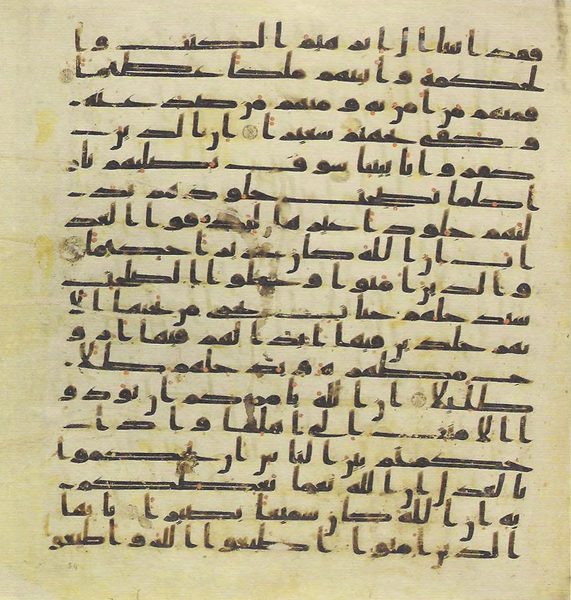 فقد اتينا ال ابرهيم الكتب وا
لحكمة واتينهم ملكا عظيما
فمنهم من امن به ومنهم من صد عنه
وكفى بجهنم سعيرا ان الذين
كفروا بايتنا سوف نصليهم نار
ا كلما نضجت جلودهم بد
لنهم جلودا غيرها ليذوقوا العذ
اب ان الله كان عزيزا حكيما
والذين امنوا وعملوا الصلحت
سندخلهم جنت تجري من تحتها الا
نهر خلدين فيها ابدا لهم فيها ازو
ج مطهرة وندخلهم ظلا
ظليلا ان الله يامركم ان تودو
ا الامنت الى اهلها واذا
حكمتم بين الناس ان تحكموا
بالعدل ان الله نعما يعظكم
به ان الله كان سميعا بصيرا يايها
الذين امنوا اطيعوا الله واطيعو